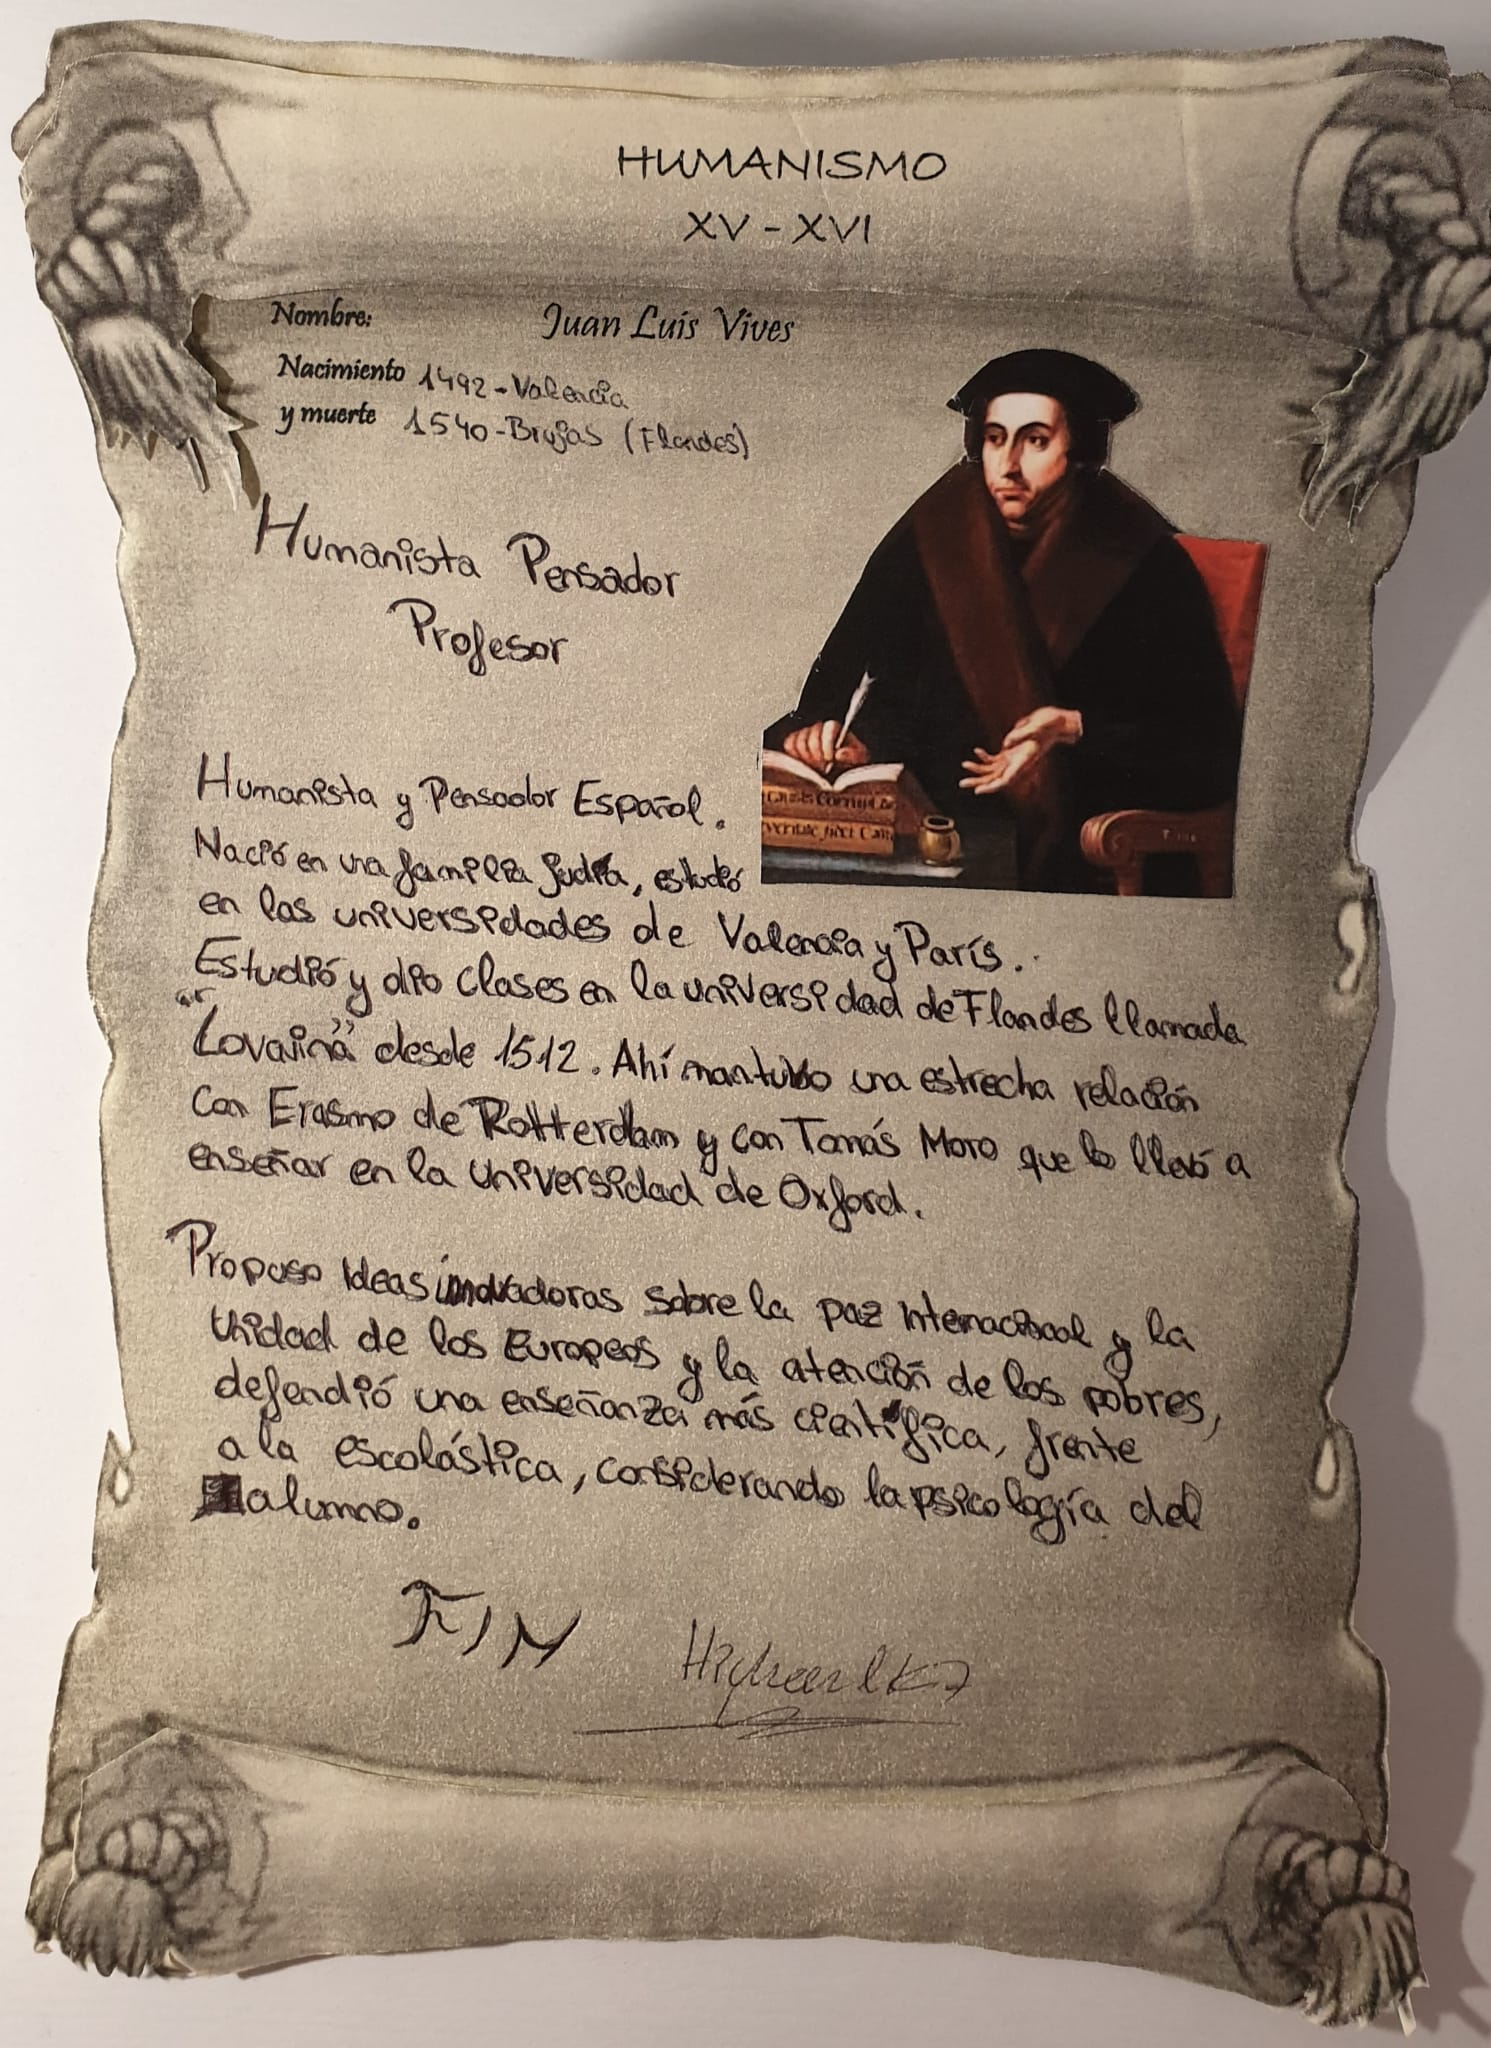 HUMANISMO
XV - XVI
Nombre: Juan Luis Vives
Nacimiento 1492 - Valencia
y muerte 1540 - Brujas (Flandes)
Humanista Pensador
Profesor
Humanista y Pensador Español.
Nació en una familia judía, estudió
en las universidades de Valencia y París.
Estudió y dio clases en la universidad de Flandes llamada
"Lovaina" desde 1512. Ahí mantubo una estrecha relación
con Erasmo de Rotterdam y con Tomás Moro que lo llevó a
enseñar en la Universidad de Oxford.
Propuso Ideas innovadoras sobre la paz internacional y la
Unidad de los Europeos y la atención de los pobres,
defendió una enseñanza más científica, frente
a la escolástica, considerando la psicología del
alumno.
FIN